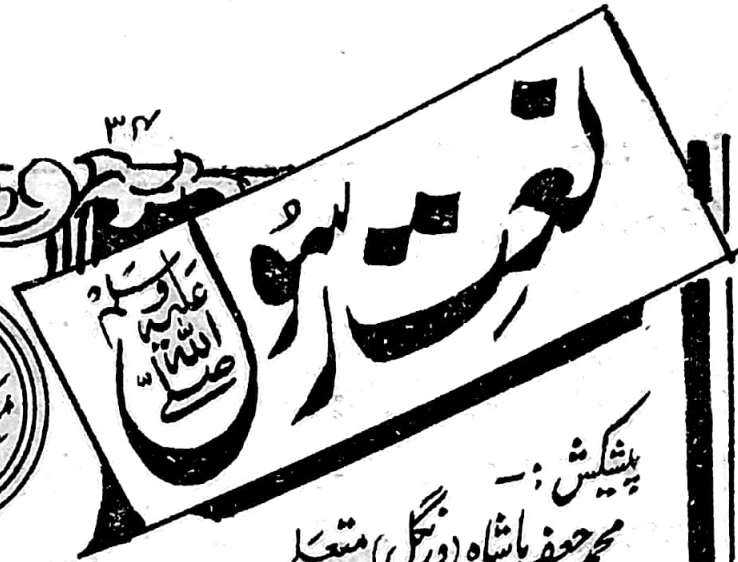 ۳۴
نعتِ رسُول صلی اللہ علیہ وسلم
پیشکش :-
محمد جعفر پاشاہ (ورنگل) متعلم